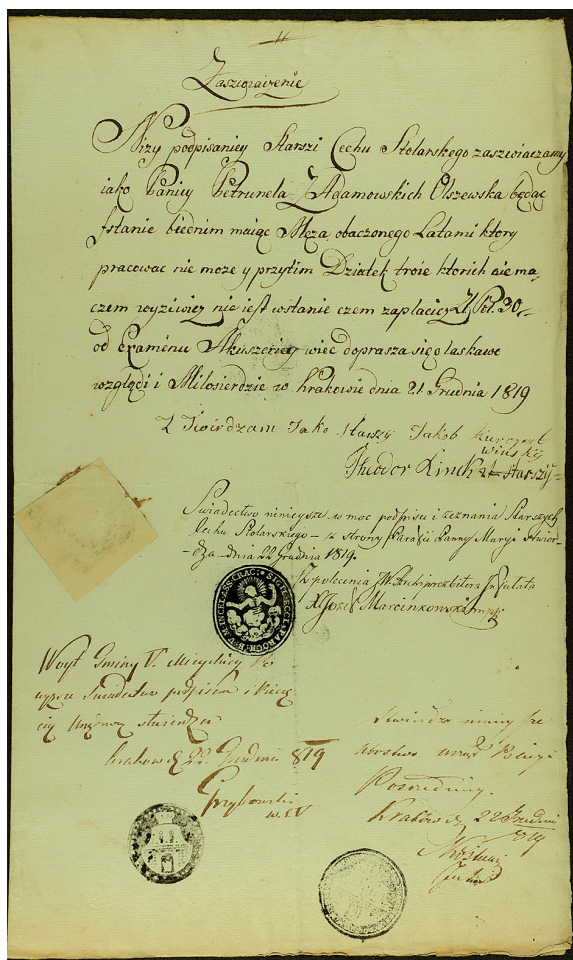 Zaszwiaczenie
Niży podpisaniey Starszi Cechu Stolarskego zaszwiaczamy
iako Paniy Petrunela Z Adamowskich Olszewska będąc
fstanie biednim maiąc Męża obaczonego Latami ktory
pracowac nie może y przytim Dziatek troie ktorich nie ma
czem wyżiwicz nie iest wstanie czem zaplacicz Zł Pol. 30
od Examenu Akuszeriey wiec doprasza się o laskawe
względi i Milosierdzie w Krakowie dnia 21 Grudnia 1819
Z Twirdzam Jako Starszy Jakob
Theodor Kinch starszy
Swiadectwo ninieysze w moc podpisu i zeznania Starszych
Cechu Stolarskiego - z strony Parafii Panny Maryi stwior-
dza dnia 22 Grudnia 1819.
Z polecenia JW Archiprezbitera Infulata
X Jozef Marcinkowski mpp
Woyt Gminy V. Mieyskiey
wyższe Swiadectwo podpisem i Piecę-
cią Urzędową stwierdza
Kraków d 22 Grudnia 1819
Grzybowski
w. G V
Stwierdza
Pośredniey.
Kraków d. 22 Grudni
1819